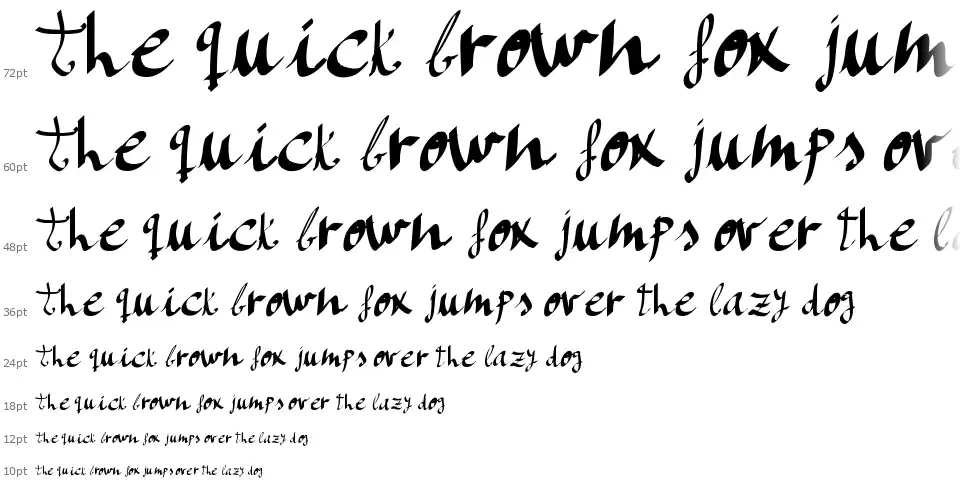 72pt the quick brown fox jum
60pt the quick brown fox jumps ov
48pt the quick brown fox jumps over the l
36pt the quick brown fox jumps over the lazy dog
24pt the quick brown fox jumps over the lazy dog
18pt the quick brown fox jumps over the lazy dog
12pt the quick brown fox jumps over the lazy dog
10pt the quick brown fox jumps over the lazy dog